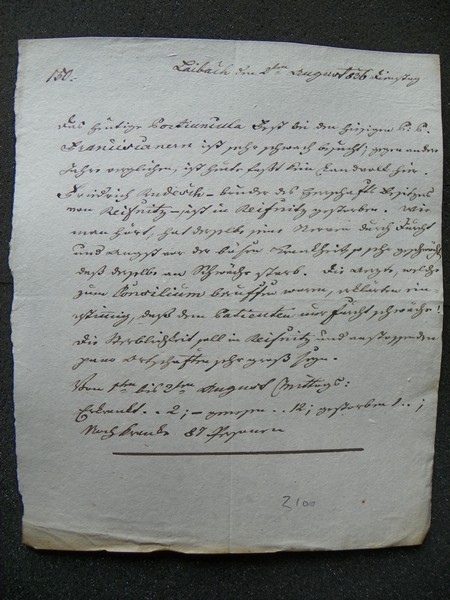 150.
Laibach den 2ten August 836 Dienstag
Das heutige Portiuncula Fest bei den hiesigen P. P.
Franciscanern ist sehr schwach besucht; gegen andere
Jahre verglichen, ist heute fast kein Landvolk hier.
Friedrich Rudesch – Bruder des Herschafts Besitzers
von Reifnitz – ist in Reifnitz gestorben. Wie
man hört, hat derselbe seine Nerven durch Furcht
und Angst vor der bösen Krankheit so sehr geschwächt
daß derselbe an Schwäche starb. Die Ärzte, welche
zum Consilium beruffen waren, erklärten ein-
stimmig, daß dem Patienten nur Furcht schwäche!
Die Sterblichkeit soll in Reifnitz und anstossenden
Ortschaften sehr groß seyn.
Vom 1ten bis 2ten August Mittags:
Erkrankt . . 2; – genesen . . 12; gestorben 1 . . ;
Noch krank 87 Personen
2100